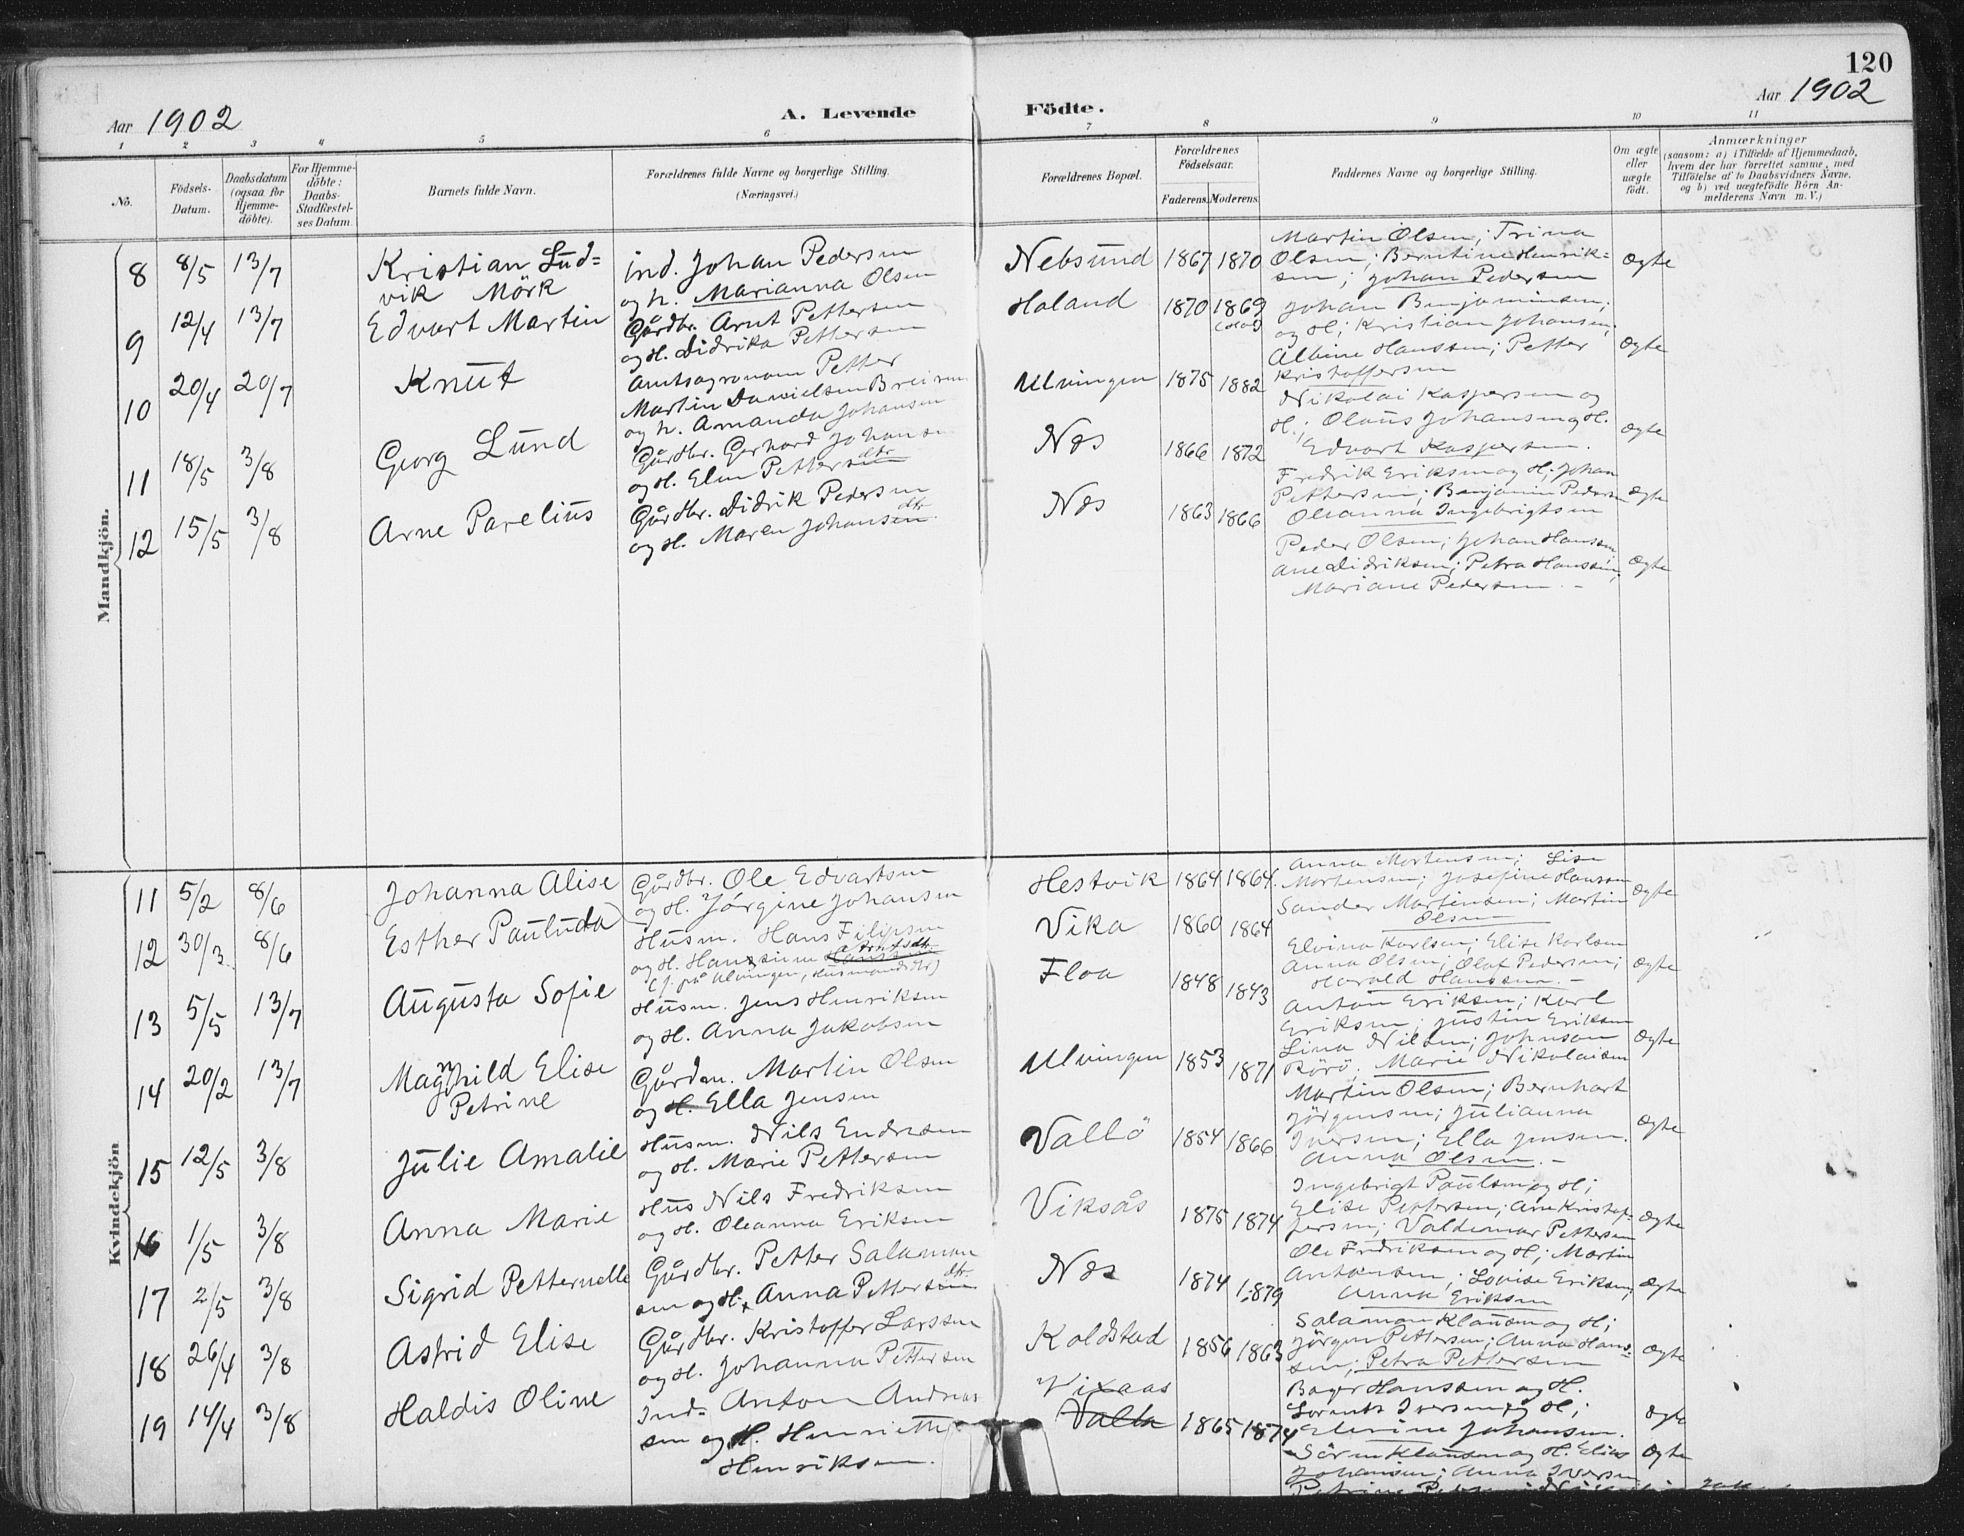 120
Aar 1902
A. Levende Födte.
Aar 1902
1 2 3 4 5 6 7 8 9 10 11
No.
Födsels-Datum.
Daabsdatum (ogsaa for Hjemme-döbte).
For Hjemme-döbte: Daabs-Stadfæstel-ses Datum.
Barnets fulde Navn.
Forældrenes fulde Navne og borgerlige Stilling. (Næringsvei.)
Forældrenes Bopæl.
Forældrenes Födselsaar.
Faderens. Moderens.
Faddernes Navne og borgerlige Stilling.
Om ægte eller uægte födt.
Anmærkninger
(saasom: a) i Tilfælde af Hjemmedaab,
hvem der har forrettet samme, med
Tilföielse af to Daabsvidners Navne,
og b) ved uægtefödte Börn An-
melderens Navn m. V.)
Mandkjön.
8 8/5 13/7 Kristian Lud=
vik Mörk
ind. Johan Pedersen
og h. Marianna Olsen
Nebsund 1867 1870
Martin Olsen; Trina
Olsen; Berntine Henrik=
sen; Johan Pedersen
Ægte
9 12/4 13/7 Edvart Martin
Gårdbr. Arnt Pettersen
og H. Didrika Pettersen
Haland 1870 1869
Johan Benjaminsen;
og H; Kristian Johansen;
Albine Hanssen; Petter
Kristoffersen
Ægte
10 20/4 20/7 Knut
Amtsagronom Petter
Martin Danielsen
og h. Amanda Johansen
Ulvingen 1875 1882
Nikolai Kaspersen og
H.; Olaus Johansen og H.
Edvart Kaspersen.
Ægte
11 18/5 3/8 Georg Lund
Gårdbr. Gerhard Johansen
og H. Elen Pettersen dtr.
Næs 1866 1872
Fredrik Eriksen og H; Johan
Pettersen; Benjamin Pedersen
Oleanna Ingebrigtsen
Ægte
12 15/5 3/8 Arne Parelius
Gårdbr. Didrik Pedersen
og H. Maren Johansen dtr.
Næs 1863 1866
Peder Olsen; Johan Hanssen
Ane Didriksen; Petra Hanssen;
Mariane Pedersen. -
Ægte
Kvindekjön
11 5/2 8/6 Johanna Alise
Gårdbr. Ole Edvartsen
og H. Jörgine Johansen
Hestvik 1864 1864.
Anna Mortensen; Lise
Mortensen; Josefine Hanssen
Sander Martinsen; Martin
Olsen
Ægte
12 30/3 8/6 Esther Pauluda
Husm. Hans Filipsen
og H. Hansine
Vika 1860 1864
Elvina Karlsen; Elise Karlsen
Anna Olsen; Olaf Pedersen;
Harald Hanssen. -
Ægte
13 5/5 13/7 Augusta Sofie
Husm. Jens Henriksen
og H. Anna Jakobsen
Floa 1848 1843
Anton Eriksen; Karl
Eriksen; Justin Eriksen
Lina Nilsen; Johnson
Rörö; Marie Nikolaisen
Ægte
14 20/2 13/7 Magnhild Elise
Petrine
Gårdm. Martin Olsen
og H. Ella Jensen
Ulvingen 1853 1871
Martin Olsen; Bernhart
Jörgensen; Julianna
Iversen; Ella Jensen.
Anna Olsen. -
Ægte
15 12/5 3/8 Julie Amalie
Husm. Nils Endresen
og H. Marie Pettersen
Vallö 1854 1866
Ingebrigt Paulsen og H;
Elise Pettersen; Ane Kristof-
fersen; Valdemar Pettersen
Ægte
16 1/5 3/8 Anna Marie
Hus Nils Fredriksen
og H. Oleanna Eriksen
Viksås 1875 1874
Ole Fredriksen og H; Martin
Antonsen; Lovise Eriksen;
Anna Eriksen
Ægte
17 2/5 3/8 Sigrid Petternelle
Gårdbr. Petter Salamon
sen og H. Anna Pettersen dtr.
Næs 1874 1879
Salamon Klausen og H;
Jörgen Pettersen; Anna Hans-
sen; Petra Pettersen
Ægte
18 26/4 3/8 Astrid Elise
Gårdbr. Kristoffer Larssen
og H. Johanna Pettersen
Koldstad 1856 1863
Hanssen og H.
Lorents Iversen og H;
Elerine Johansen.
Ægte
19 14/4 3/8 Haldis Oline
Ind. Anton Andreas
sen og H. Henriette
Henriksen.
Vixaas
Valla 1865 1874
Sören Klausen og H. Elias
Johansen; Anna Iversen
Ægte